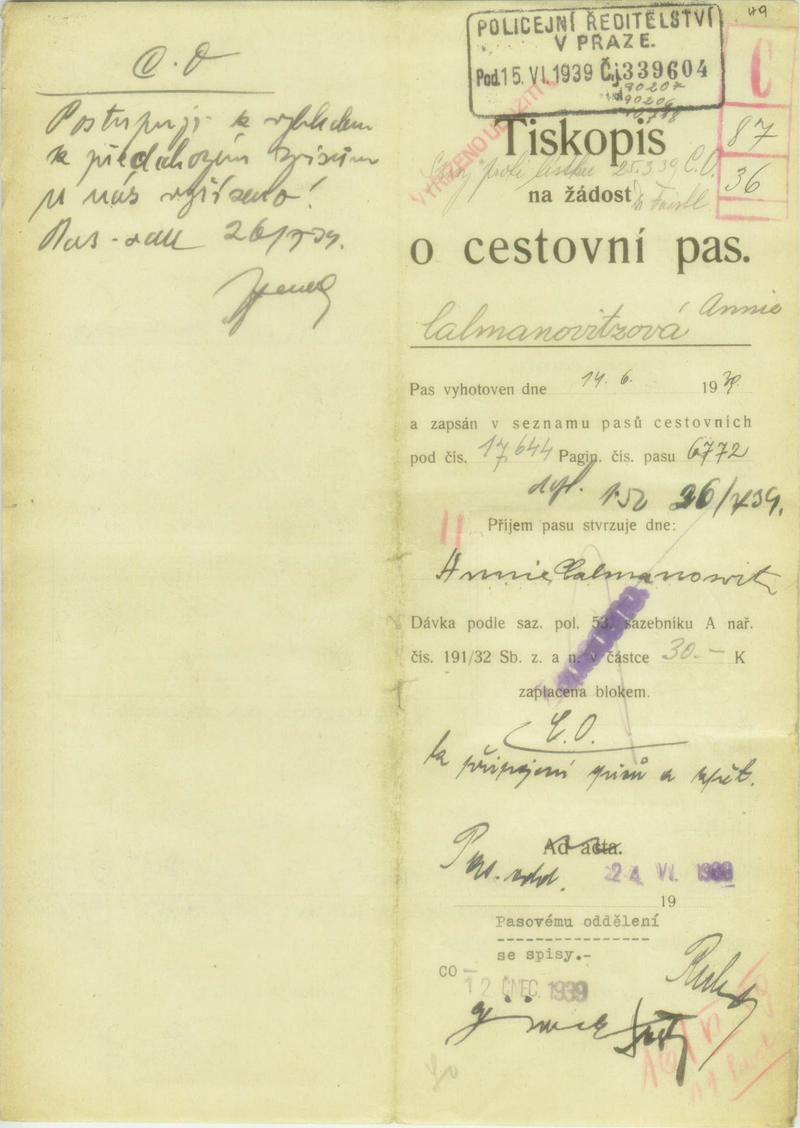 C. O
Postupuji k vyhledem
k předchozím spisům
u nás vyřízeno!
Pas-odd
49
POLICEJNÍ ŘEDITELSTVÍ
V PRAZE.
Pod. 15. VI. 1939 Čj. 339604
190207
190206
C
87
36
Tiskopis
proti lístku 25.3.39 C.O.
na žádost
o cestovní pas.
Calmanovitzová Annie
Pas vyhotoven dne 14. 6. 1939
a zapsán v seznamu pasů cestovních
pod čís. 17,644 Pagin. čís. pasu 6772
26/7 39.
II
Příjem pasu stvrzuje dne:
Annie Calmanowitz
Dávka podle saz. pol. 53. sazebníku A nař.
čís. 191/32 Sb. z. a n. v částce 30.- K
zaplacena blokem.
C. O.
k připojení spisů a zpět.
Ad acta.
Pas. odd. 24 VI. 1939
19
Pasovému oddělení
se spisy.-
CO -
12 ČNEC. 1939